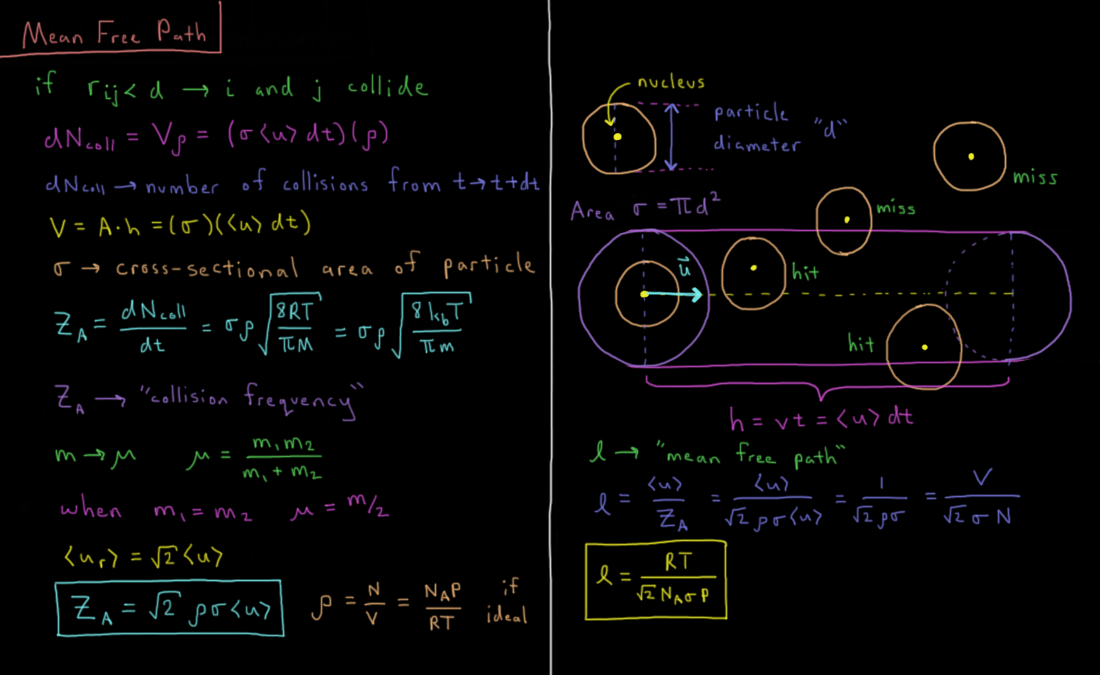 Mean Free Path
if r_ij < d → i and j collide
dN_coll = Vρ = (σ⟨u⟩ dt)(ρ)
dN_coll → number of collisions from t → t+dt
V = A·h = (σ)(⟨u⟩ dt)
σ → cross-sectional area of particle
Z_A = dN_coll/dt = σρ√(8RT/πM) = σρ√(8k_bT/πm)
Z_A → "collision frequency"
m → μ μ = m₁m₂/(m₁+m₂)
when m₁ = m₂ μ = m/2
⟨u_r⟩ = √2⟨u⟩
Z_A = √2 ρσ⟨u⟩ ρ = N/V = N_AP/RT if ideal
nucleus
particle diameter "d"
miss
Area σ = πd²
miss
u⃗
hit
hit
h = vt = ⟨u⟩ dt
l → "mean free path"
l = ⟨u⟩/Z_A = ⟨u⟩/(√2 ρσ⟨u⟩) = 1/(√2 ρσ) = V/(√2 σN)
l = RT/(√2 N_AσP)